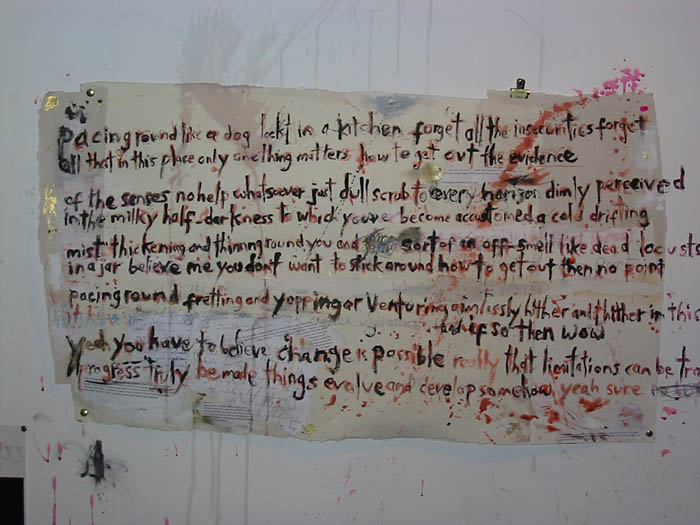 pacing round like a dog lockt in a kitchen forget all the insecurities forget
all that in this place only one thing matters how to get out the evidence
of the senses no help whatsoever just dull scrub to every horizon dimly perceived
in the milky half-darkness to which you've become accustomed a cold drifting
mist thickening and thinning round you and sort of an off-smell like dead locusts
in a jar believe me you don't want to stick around how to get out then no point
pacing round fretting and yopping or venturing aimlessly hither and thither in this
and if so then wow
yeah you have to believe change is possible really that limitations can be tra
progress truly be made things evolve and develop somehow yeah sure